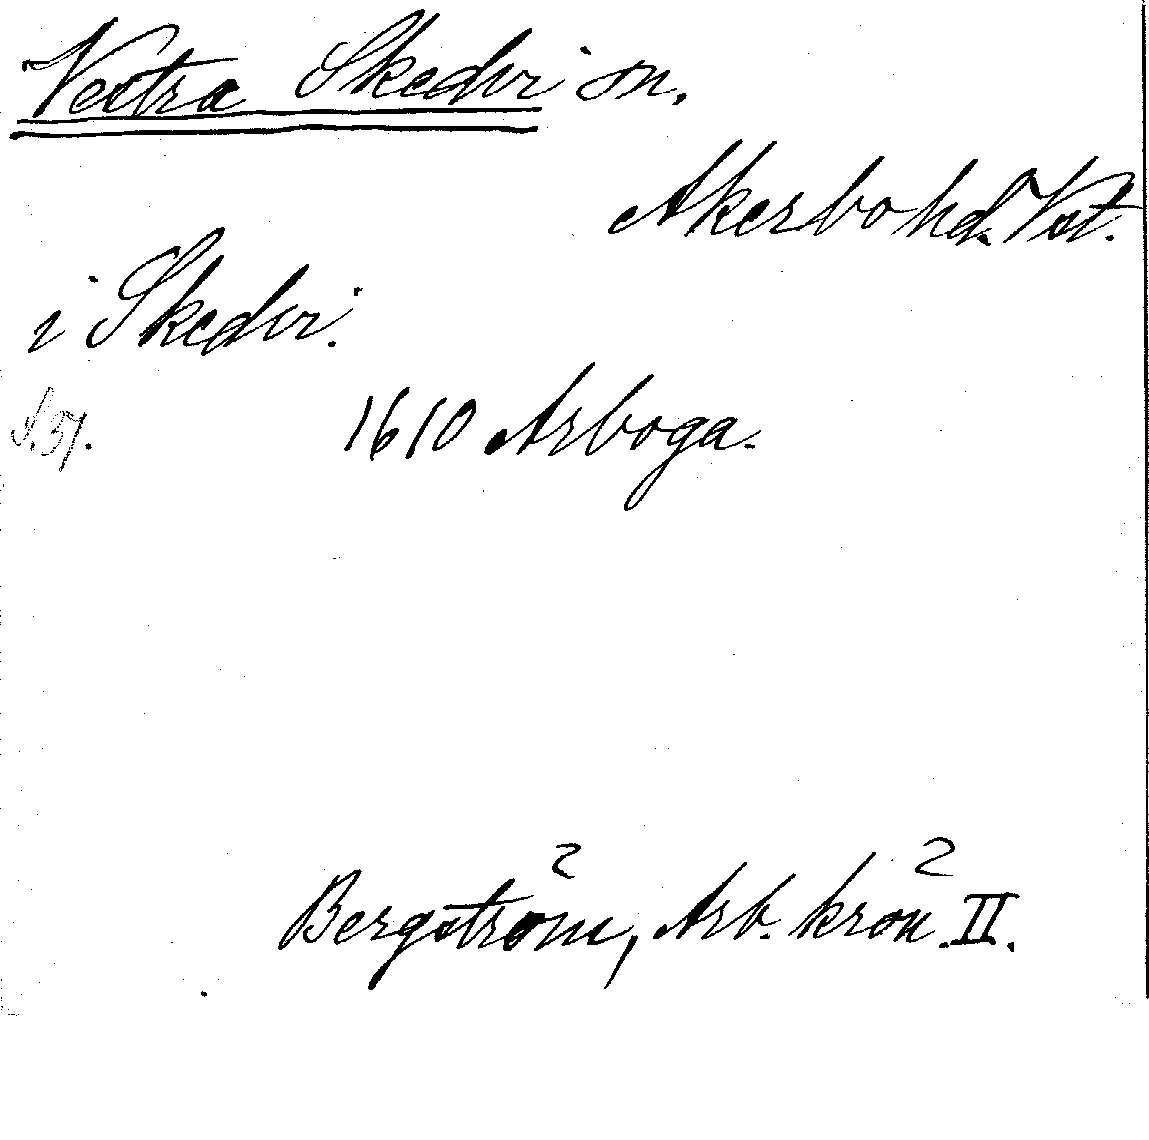 Vestra Skedvi sn.
Åkerbo hd. Vst.
i Skedvi.
S. 51. 1610 Arboga.
Bergström, Arb. krön. II.